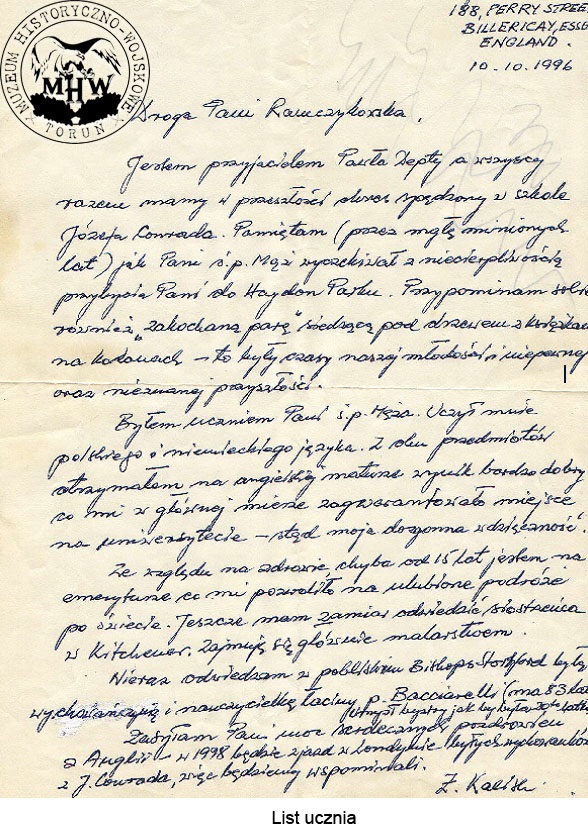 188, PERRY STREE
BILLERICAY, ESSE
ENGLAND.
10.10.1996
MUZEUM HISTORYCZNO-WOJSKOWE
MHW
TORUŃ
Droga Pani
Jestem przyjacielem Pawła Depty a wszyscy
razem mamy w przeszłości okres spędzony w szkole
Józefa Conrada. Pamiętam (przez mgłę minionych
lat) jak Pani ś.p. Mąż wyczekiwał z niecierpliwością
przybycia Pani do Haydon Parku. Przypominam sobie
również „zakochaną parę" siedzącą pod drzewem z książkam
na kolanach – to były czasy naszej młodości i niepewnej
oraz nieznanej przyszłości.
Byłem uczniem Pani ś.p. Męża. Uczył mnie
polskiego i niemieckiego języka. Z obu przedmiotów
otrzymałem na angielskiej maturze wynik bardzo dobry
co mi w głównej mierze zagwarantowało miejsce
na uniwersytecie – stąd moja dozgonna wdzięczność.
Ze względu na zdrowie chyba od 15 lat jestem na
emeryturze co mi pozwoliło na ulubione podróże
po świecie. Jeszcze mam zamiar odwiedzić siostrzeńca
w Kitchener. Zajmuję się głównie malarstwem.
Nieraz odwiedzam w pobliskim Bishops Stortford byłą
wychowawczynię i nauczycielkę łaciny p. Bacciarelli (ma 83 lat
umysł bystry jak by była
Zasyłam Pani moc serdecznych pozdrowień
z Anglii – w 1998 będzie zjazd w Londynie byłych wychowanków
z J. Conrada, więc będziemy wspominali.
List ucznia